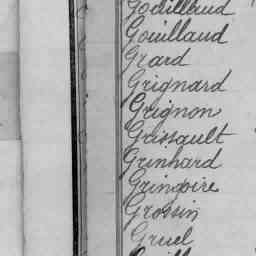 Gouilland
Grard
Grignard
Grignon
Grissault
Grinhard
Gringoire
Grossin
Gruel